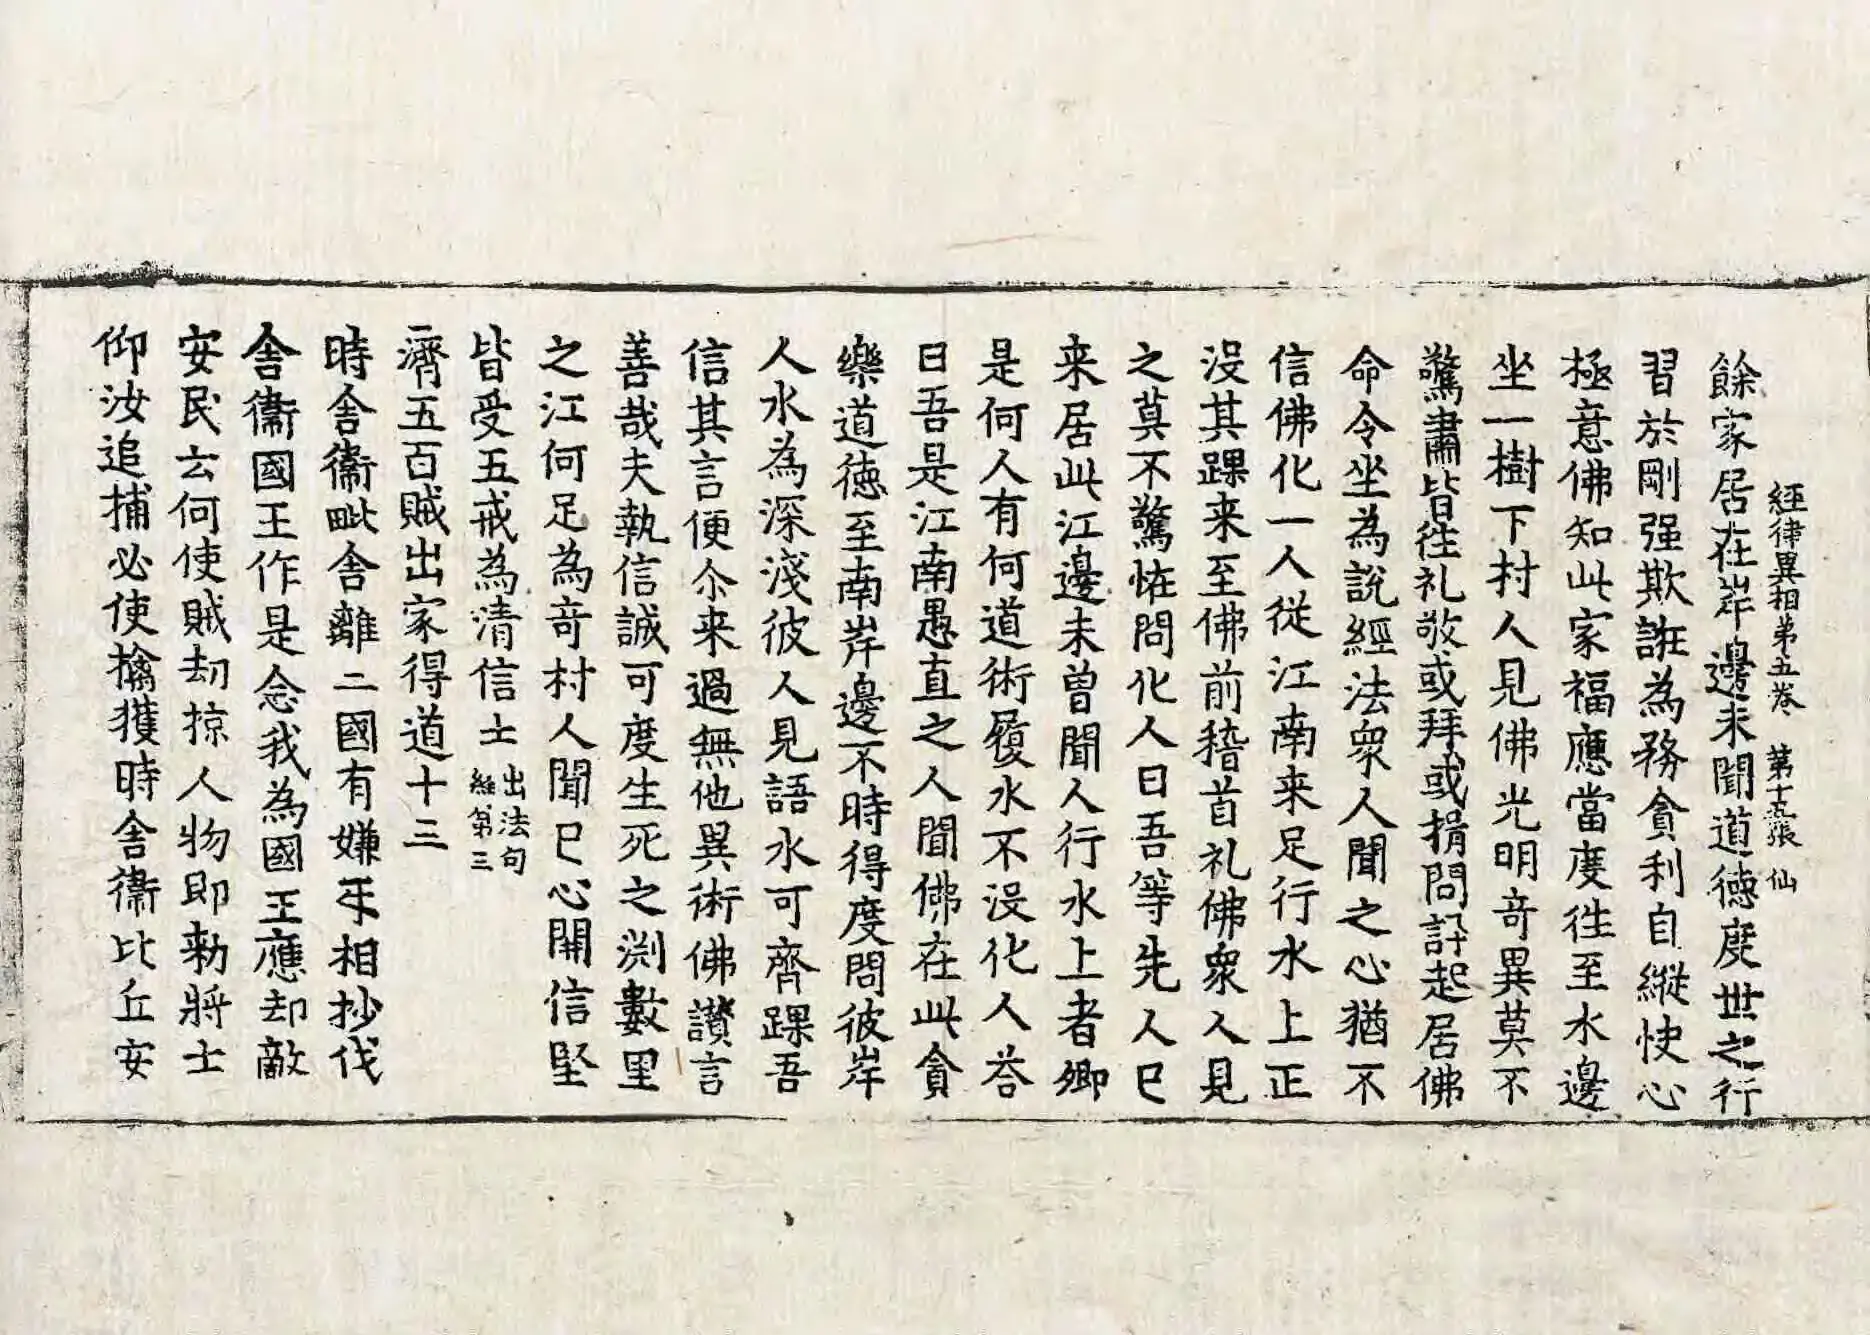 經律異相第五卷　第十五張　仙
餘家居在岸邊未聞道德度世之行
習於剛强欺誑為務貪利自縱快心
極意佛知此家福應當度往至水邊
坐一樹下村人見佛光明奇異莫不
驚肅皆往礼敬或拜或揖問訊起居佛
命令坐為說經法衆人聞之心猶不
信佛化一人從江南来足行水上正
没其踝来至佛前稽首礼佛衆人見
之莫不驚恠問化人曰吾等先人已
来居此江邊未曾聞人行水上者卿
是何人有何道術履水不没化人荅
曰吾是江南愚直之人聞佛在此貪
樂道德至南岸邊不時得度問彼岸
人水為深淺彼人見語水可齊踝吾
信其言便尒来過無他異術佛讃言
善哉夫執信誠可度生死之渕數里
之江何足為奇村人聞已心開信堅
皆受五戒為清信士出法句經第三
濟五百賊出家得道十三
時舍衞毗舍離二國有嫌㸦相抄伐
舍衞國王作是念我為國王應却敵
安民云何使賊刼掠人物即勑將士
仰汝追捕必使擒獲時舍衞比丘安